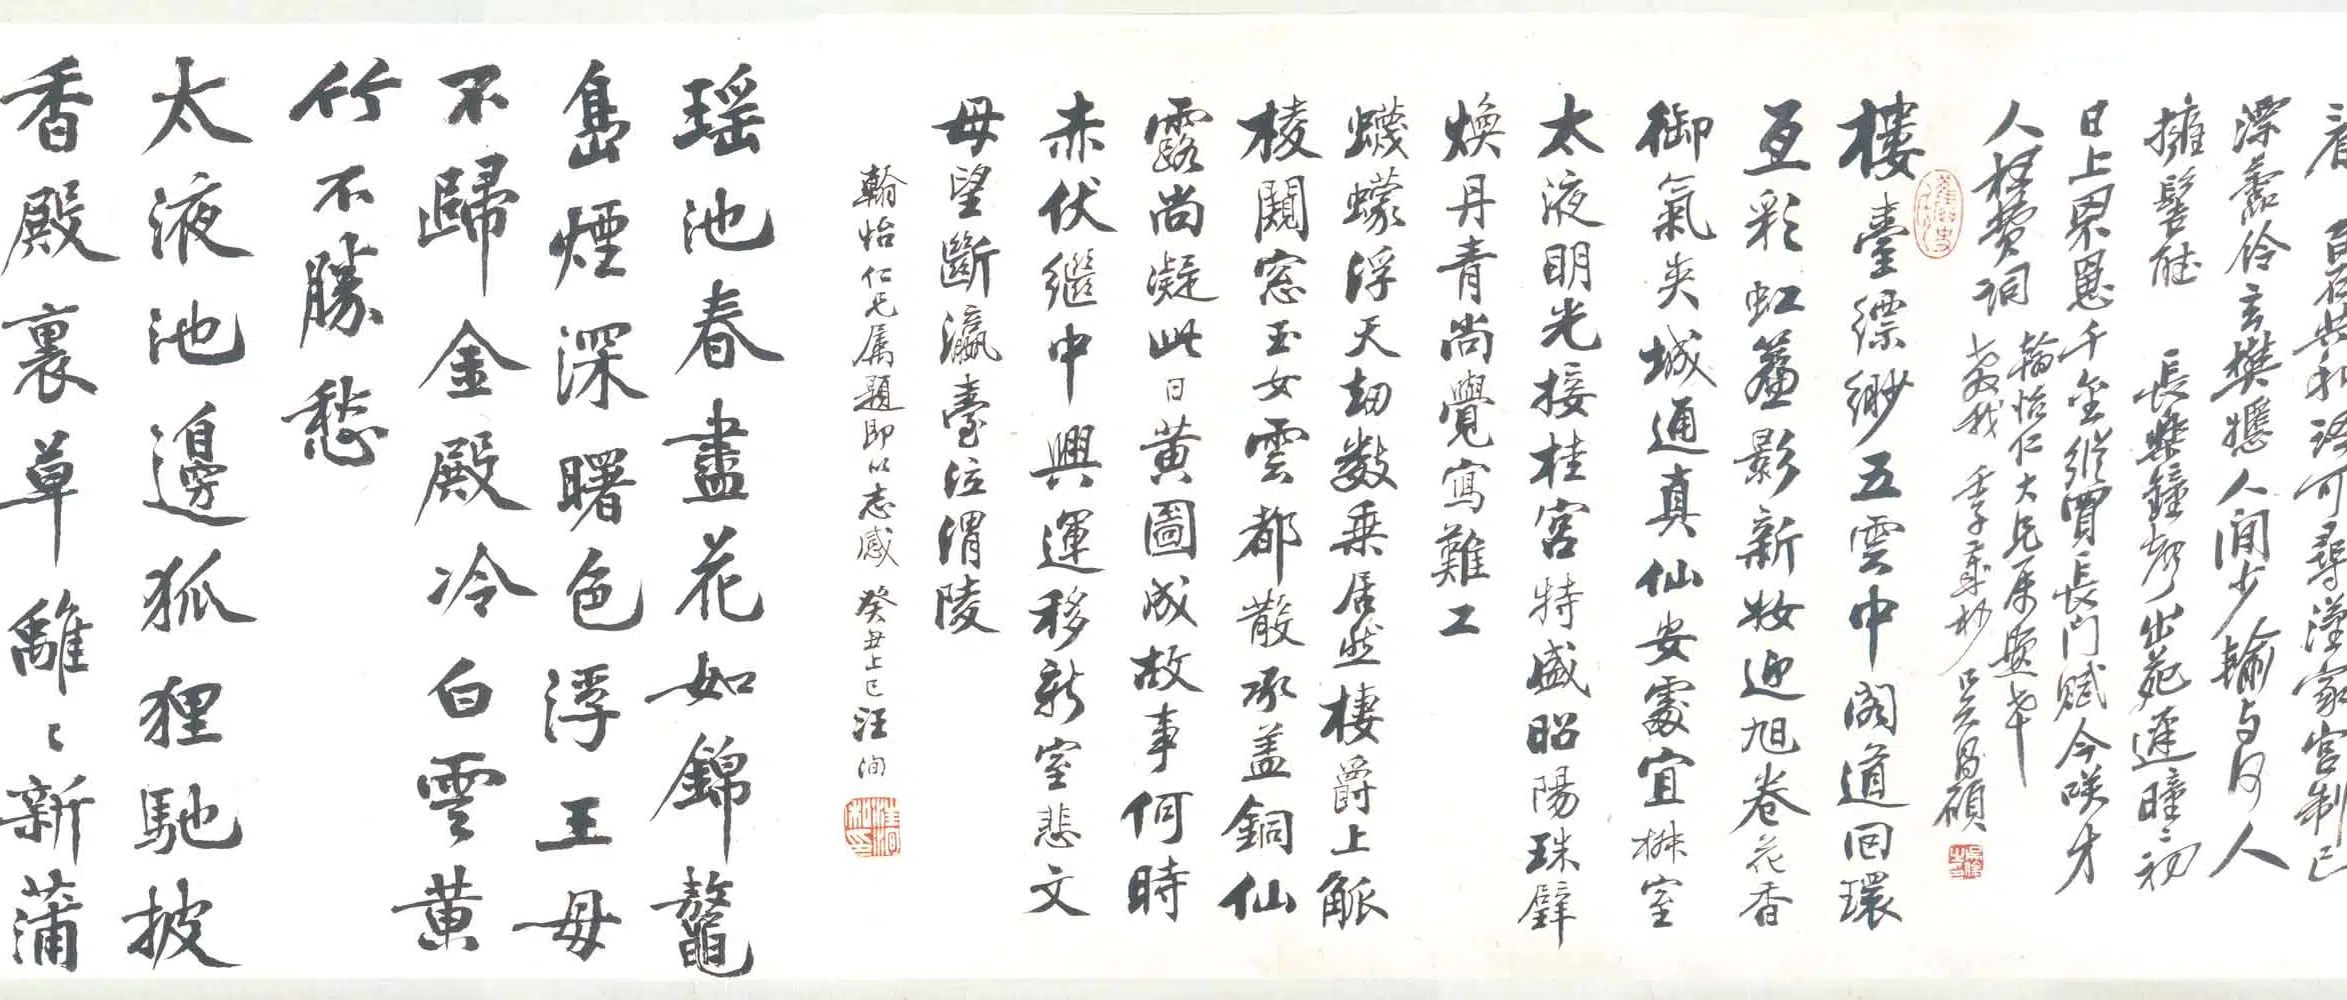 看 百石 可尋漢家宮制已
漂 零伶玄樊嬺人間少輸与何人
擁髻 長樂鐘聲出苑遲曈〻初
日上罘罳千金縱買長門賦今嘆才
人枉費詞
翰怡仁大兄屬題
教我 季 吳昌碩
樓臺縹緲五雲中閣道回環
亙彩虹簾影新妝迎旭卷花香
御氣夾城通真仙安處宜椒室
太液明光接桂宮特盛昭陽珠璧
煥丹青尚覺寫難工
蠛蠓浮天劫數乘居然棲爵上觚
棱闚窓玉女雲都散承蓋銅仙
露尚凝此日黃圖成故事何時
赤伏繼中興運移新室悲文
母望斷瀛臺泣渭陵
翰怡仁兄屬題即以志感 癸丑上巳汪洵
瑶池春盡花如錦鼇
島煙深曙色浮王母
不歸金殿冷白雲黃
竹不勝愁
太液池邊狐狸馳披
香殿裏草離〻新蒲